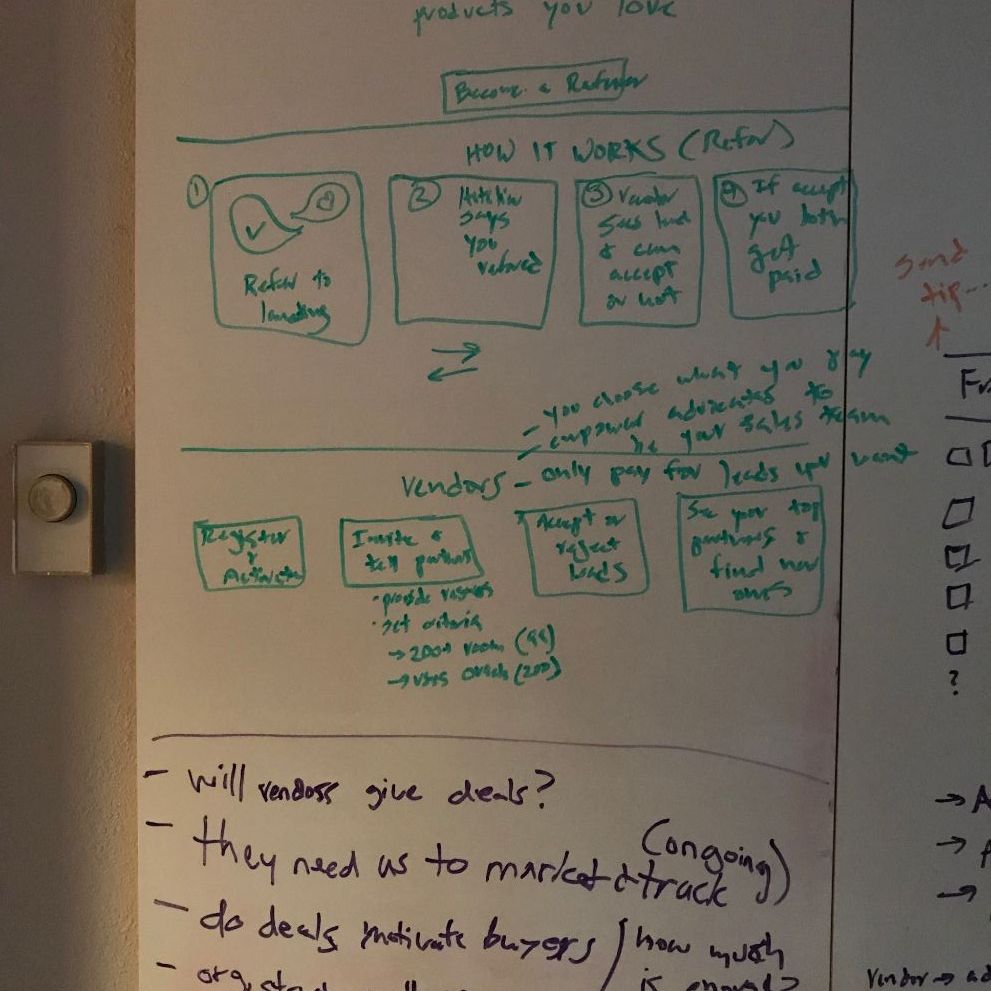 products you love
Become a Referrer
HOW IT WORKS (Refer)
1
Refer to
landing
2
says
you
referred
3 Vendor
sees lead
& can
accept
or not
4 If accept
you both
get
paid
send
tip...
- you choose what you pay
- empower advocates to
be your sales team
Vendors - only pay for leads you want
Register
&
Activate
Invite &
tell partners
• provide
• set criteria
→ 200+ room (99)
→ uses (200)
Accept or
reject
leads
See your top
partners &
find new
ones
- will vendors give deals?
- they need us to market & track
(ongoing)
- do deals motivate buyers / how much
is enough?
?
→ A
→
→
vendor → ad